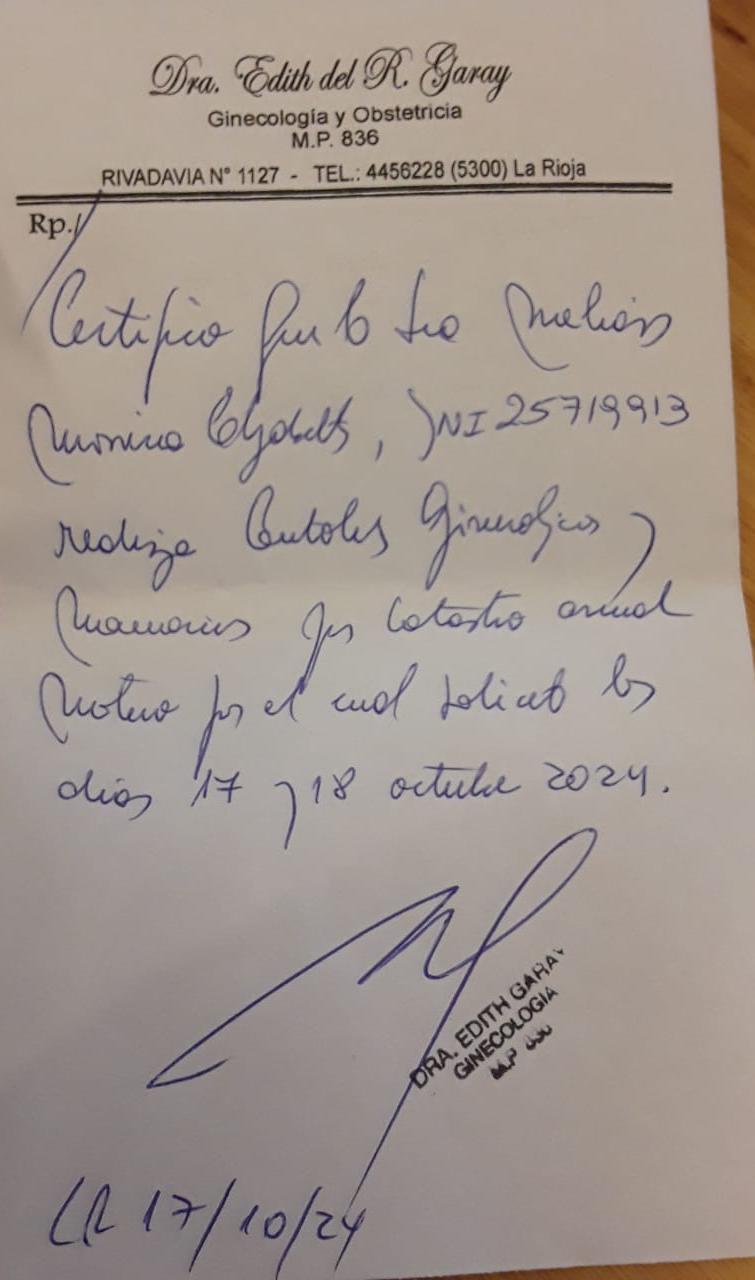 Dra. Edith del R. Garay
Ginecología y Obstetricia
M.P. 836
RIVADAVIA N° 1127 - TEL.: 4456228 (5300) La Rioja
Rp./
Certifico que la Sra
Monica Elizabeth, DNI 25719913
realiza Controles Ginecologicos y
Mamarios por Catastro anual
Motivo por el cual solicito los
dias 17 y 18 octubre 2024.
DRA. EDITH GARAY
GINECOLOGIA
M.P
LR 17/10/24